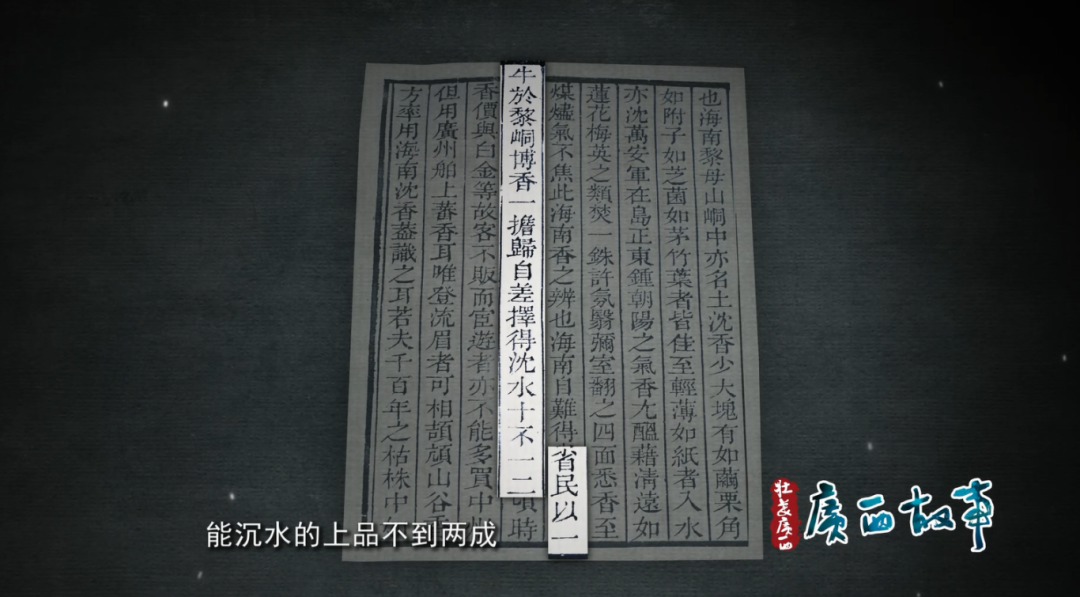 也海南黎母山峒中亦名土沈香少大塊有如繭栗角
如附子如芝菌如茅竹葉者皆佳至輕薄如紙者入水
亦沈萬安軍在島正東鍾朝陽之氣香尤醞藉清遠如
蓮花梅英之類焚一銖許氛翳彌室翻之四面悉香至
煤燼氣不焦此海南香之辨也海南自難得省民以一
牛於黎峒博香一擔歸自差擇得沈水十不一二頃時
香價與白金等故客不販而宦遊者亦不能多買中
但用廣州舶上蕃香耳唯登流眉者可相頡頏山谷
方率用海南沈香蓋識之耳若夫千百年之枯株中
能沉水的上品不到两成
壮美廣西
廣西故事